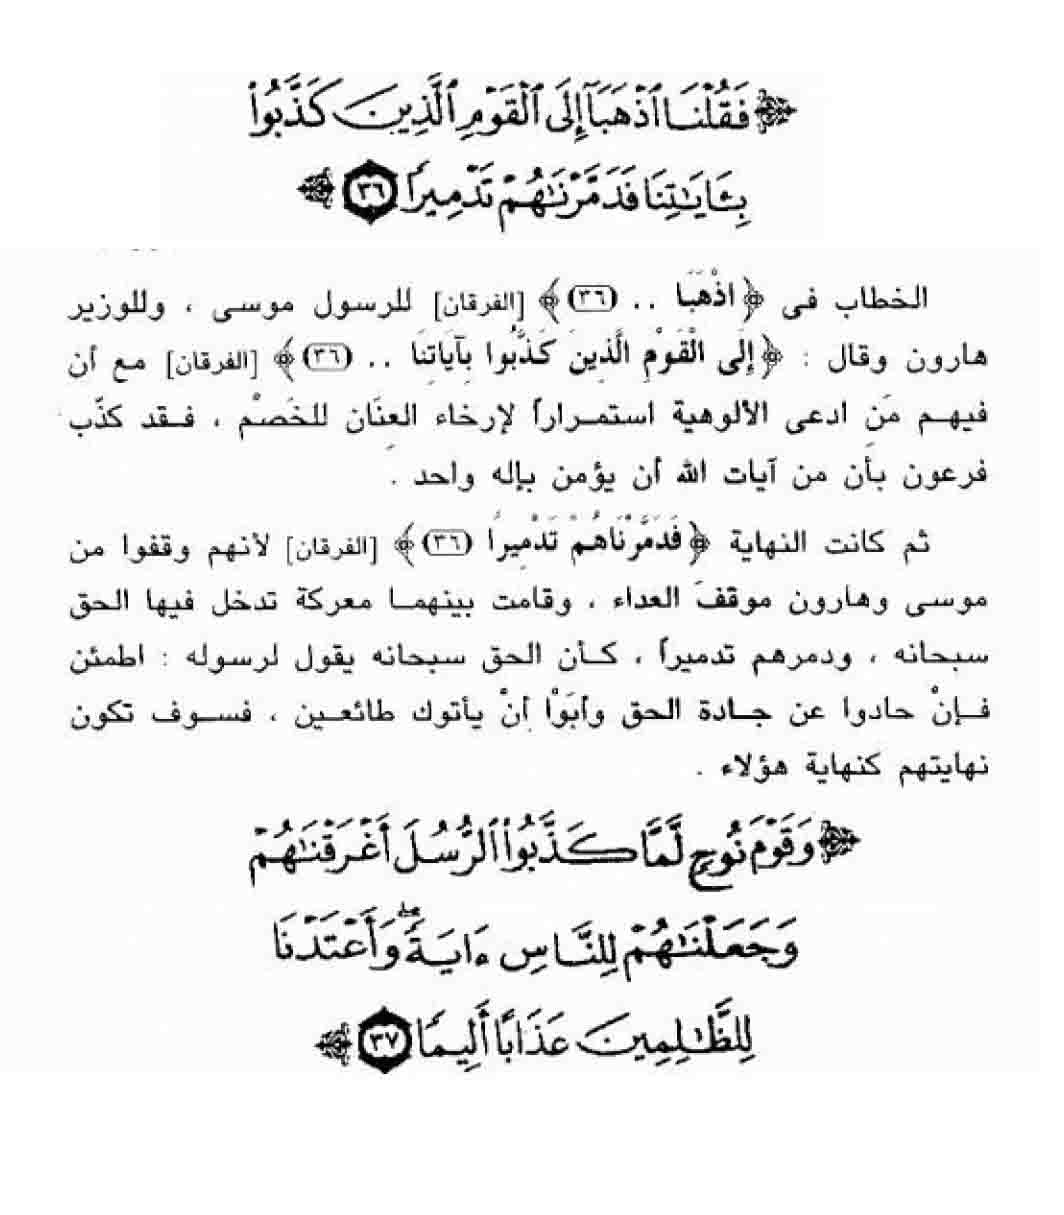 ﴿فَقُلْنَا ٱذْهَبَآ إِلَى ٱلْقَوْمِ ٱلَّذِينَ كَذَّبُوا۟
بِـَٔايَـٰتِنَا فَدَمَّرْنَـٰهُمْ تَدْمِيرًا ٣٦﴾
الخطاب فى ﴿ اذْهَبَا .. (٣٦) ﴾ [الفرقان] للرسول موسى ، وللوزير
هارون وقال : ﴿ إِلَى الْقَوْمِ الَّذِينَ كَذَّبُوا بِآيَاتِنَا .. (٣٦) ﴾ [الفرقان] مع أن
فيهم مَن ادعى الألوهية استمراراً لإرخاء العنَان للخَصْم ، فقد كذَّب
فرعون بأن من آيات الله أن يؤمن بإله واحد .
ثم كانت النهاية ﴿ فَدَمَّرْنَاهُمْ تَدْمِيرًا (٣٦) ﴾ [الفرقان] لأنهم وقفوا من
موسى وهارون موقفَ العداء ، وقامت بينهما معركة تدخل فيها الحق
سبحانه ، ودمرهم تدميراً ، كأن الحق سبحانه يقول لرسوله : اطمئن
فإنْ حادوا عن جادة الحق وأبَوْا أنْ يأتوك طائعين ، فسوف تكون
نهايتهم كنهاية هؤلاء .
﴿وَقَوْمَ نُوحٍ لَّمَّا كَذَّبُوا۟ ٱلرُّسُلَ أَغْرَقْنَـٰهُمْ
وَجَعَلْنَـٰهُمْ لِلنَّاسِ ءَايَةً ۖ وَأَعْتَدْنَا
لِلظَّـٰلِمِينَ عَذَابًا أَلِيمًا ٣٧﴾